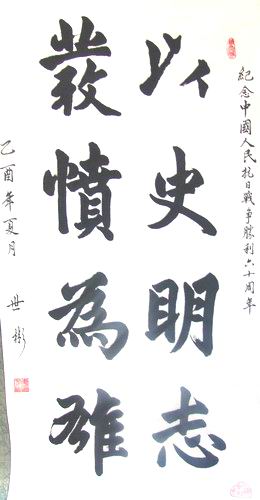 紀念中國人民抗日戰争勝利六十周年
以史明志
發憤為雄
乙酉年夏月 世彬